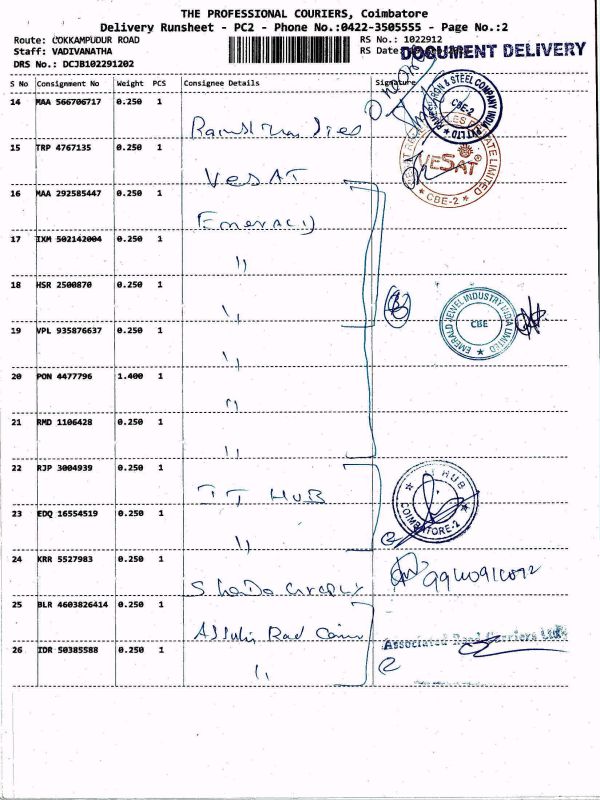 THE PROFESSIONAL COURIERS, Coimbatore
Delivery Runsheet - PC2 - Phone No.:0422-3505555 - Page No.:2
Route: COKKAMPUDUR ROAD
RS No.: 1022912
Staff: VADIVANATHA
RS Date
DOCUMENT DELIVERY
DRS No.: DCJB102291202
S No Consignment No Weight PCS Consignee Details Signature
14 MAA 566706717 0.250 1
IRON & STEEL COMPANY INDIA PVT LTD CBE-2
15 TRP 4767135 0.250 1 VESAT
VESAT
LIMITED CBE-2
16 MAA 292585447 0.250 1
17 IXM 502142004 0.250 1 "
18 HSR 2500870 0.250 1 "
EMERALD JEWEL INDUSTRY INDIA LIMITED
CBE
19 VPL 935876637 0.250 1 "
20 PON 4477796 1.400 1 "
21 RMD 1106428 0.250 1 "
22 RJP 3004939 0.250 1 IT HUB
HUB
COIMBATORE-2
23 EDQ 16554519 0.250 1 "
24 KRR 5527983 0.250 1
25 BLR 4603826414 0.250 1
Associated Road Carriers Ltd
26 IDR 50385588 0.250 1 "